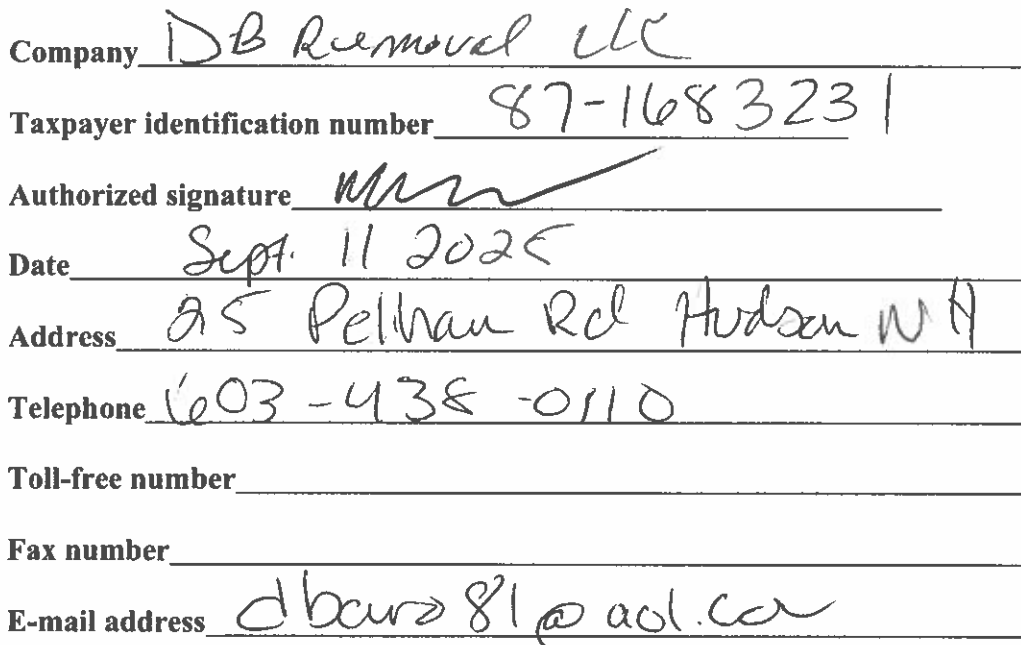 Company DB Removal LLC
Taxpayer identification number 87-1683231
Authorized signature
Date Sept. 11 2025
Address 25 Pelham Rd Hudson NH
Telephone 603-438-0110
Toll-free number
Fax number
E-mail address @aol.com